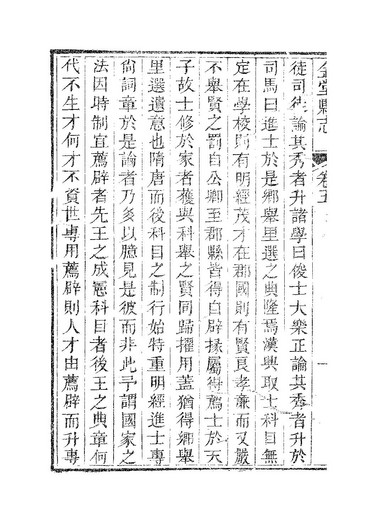 金堂縣志
卷五
徒司徒論其秀者升諸學曰俊士大樂正論其秀者升於
司馬曰進士於是鄉舉里選之典隆焉漢興取士科目無
定在學校則有明經茂才在郡國則有賢良孝廉而又嚴
不舉賢之罰自公卿至郡縣皆得自辟掾屬得薦士於天
子故士修於家者獲與科舉之賢同歸擢用蓋猶得鄉舉
里選遺意也隋唐而後科目之制行始特重明經進士專
尚詞章於是論者乃多以臆見是彼而非此予謂國家之
法因時制宜薦辟者先王之成憲科目者後王之典章何
代不生才何才不資世專用薦辟則人才由薦辟而升專